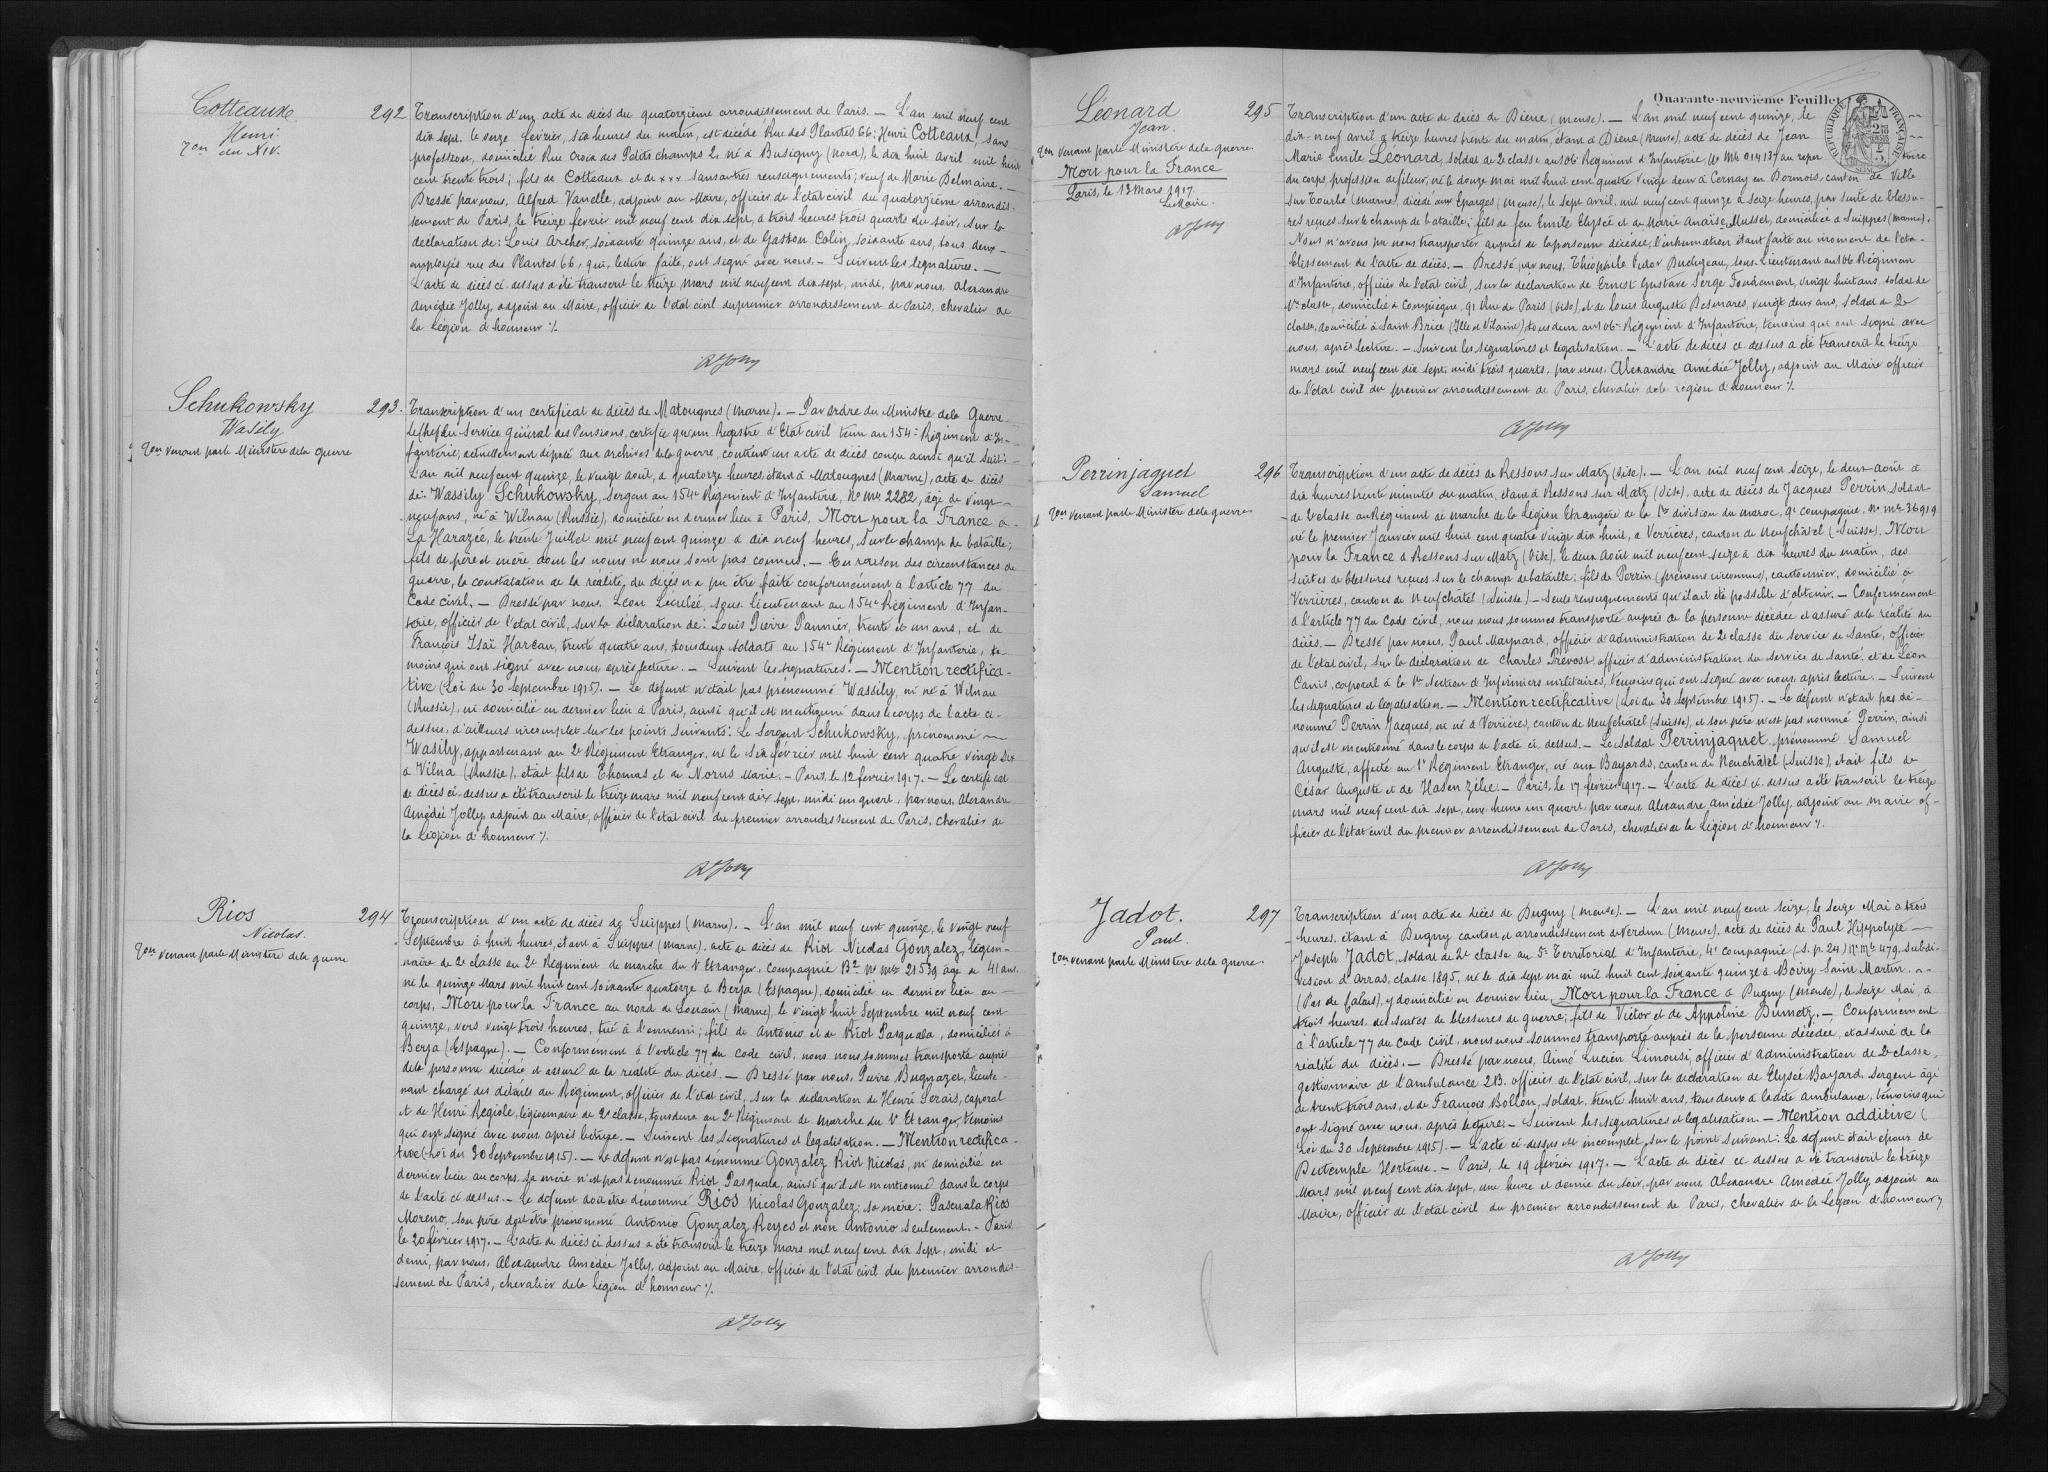 Cotteaux
Henri
Ton du XIV.
292
Transcription d'un acte de décès du quatorzième arrondissement de Paris. — L'an mil neuf cent
dix sept, le onze février, six heures du matin, est décédé Rue des Plantes 66: Henri Cotteaux, sans
profession, domicilié Rue Croix des Petits champs 2, né à Busigny (Nord), le dix huit avril mil huit
cent trente trois; fils de Cotteaux et de xxx sans autres renseignements; veuf de Marie Delmaire. —
Dressé par nous, Alfred Vanelle, adjoint au Maire, officier de l'état civil du quatorzième arrondis-
sement de Paris, le treize février mil neuf cent dix sept, à trois heures trois quarts du soir, sur la
déclaration de: Louis Archer, soixante quinze ans, et de Gaston Colin, soixante ans, tous deux
employés rue des Plantes 66, qui, lecture faite, ont signé avec nous. — Suivent les signatures. —
L'acte de décès ci-dessus a été transcrit le treize mars mil neuf cent dix sept, midi, par nous, Alexandre
Amédée Jolly, adjoint au Maire, officier de l'état civil du premier arrondissement de Paris, chevalier de
la Légion d'honneur ./.
AJolly
Schukowsky
Wasily
Ton venant par le Ministère de la guerre
293.
Transcription d'un certificat de décès de Matougnes (Marne). — Par ordre du Ministre de la Guerre,
le chef du Service Général des Pensions, certifie qu'un Registre d'Etat civil tenu au 154e Régiment d'In-
fanterie, actuellement déposé aux archives de la guerre, contient un acte de décès conçu ainsi qu'il suit: —
L'an mil neuf cent quinze, le vingt août, à quatorze heures, étant à Matougnes (Marne), acte de décès
de: Wassily Schukowsky, Sergent au 154e Régiment d'Infanterie, No Mle 2282, âgé de vingt
neuf ans, né à Wilnau (Russie), domicilié en dernier lieu à Paris, Mort pour la France à
La Harazée, le trente Juillet mil neuf cent quinze à dix neuf heures, sur le champ de bataille;
fils de père et mère dont les noms ne nous sont pas connus. — En raison des circonstances de
guerre, la constatation de la réalité, du décès n'a pu être faite conformément à l'article 77 du
Code civil. — Dressé par nous, Léon Lécubée, sous lieutenant au 154e Régiment d'Infan-
terie, officier de l'état civil, sur la déclaration de: Louis Pierre Pannier, trente et un ans, et de
François Isaï Harean, trente quatre ans, tous deux soldats au 154e Régiment d'Infanterie, té-
moins qui ont signé avec nous après lecture. — Suivent les signatures. — Mention rectifica-
tive (Loi du 30 Septembre 1915). — Le défunt n'était pas prénommé Wassily, ni né à Wilnau
(Russie), ni domicilié en dernier lieu à Paris, ainsi qu'il est mentionné dans le corps de l'acte ci-
dessus, d'ailleurs incomplet sur les points suivants: Le Sergent Schukowsky, prénommé
Wasily, appartenant au 2e Régiment Etranger, né le six février mil huit cent quatre vingt six
à Vilna (Russie), était fils de Thomas et de Norus Marie. — Paris, le 12 février 1917. — Le certificat
de décès ci-dessus a été transcrit le treize mars mil neuf cent dix sept, midi un quart, par nous, Alexandre
Amédée Jolly, adjoint au Maire, officier de l'état civil du premier arrondissement de Paris, chevalier de
la Légion d'honneur ./.
AJolly
Rios
Nicolas.
Ton venant par le Ministère de la guerre
294
Transcription d'un acte de décès de Suippes (Marne). — L'an mil neuf cent quinze, le vingt neuf
Septembre à huit heures, étant à Suippes (Marne), acte de décès de Riot Nicolas Gonzalez, légion-
naire de 2e classe au 2e Régiment de marche du 1er Etranger, Compagnie B2 No Mle 21539, âgé de 41 ans
né le quinze Mars mil huit cent soixante quatorze à Berja (Espagne), domicilié en dernier lieu au
corps, Mort pour la France au nord de Souain (Marne), le vingt huit Septembre mil neuf cent
quinze, vers vingt trois heures, tué à l'ennemi; fils de Antonio et de Riot Pasquala, domiciliés à
Berja (Espagne). — Conformément à l'article 77 du code civil, nous nous sommes transporté auprès
de la personne décédée et assuré de la réalité du décès. — Dressé par nous, Pierre Bugnazet, lieute-
nant chargé des détails du Régiment, officier de l'état civil, sur la déclaration de Henri Serais, caporal
et de Henri Regiole, légionnaire de 2e classe, tous deux au 2e Régiment de marche du 1er Etranger, témoins
qui ont signé avec nous après lecture. — Suivent les signatures et légalisation. — Mention rectifica-
tive (Loi du 30 Septembre 1915). — Le défunt n'est pas dénommé Gonzalez Riot Nicolas, ni domicilié en
dernier lieu au corps, sa mère n'est pas dénommée Riot Pasquala, ainsi qu'il est mentionné dans le corps
de l'acte ci-dessus. — Le défunt doit être dénommé Rios Nicolas Gonzalez; sa mère: Pascuala Rios
Moreno, son père doit être prénommé Antonio Gonzalez Reyes et non Antonio seulement. — Paris,
le 20 février 1917. — L'acte de décès ci dessus a été transcrit le treize mars mil neuf cent dix sept, midi et
demi, par nous, Alexandre Amédée Jolly, adjoint au Maire, officier de l'état civil du premier arrondis-
sement de Paris, chevalier de la Légion d'honneur ./.
AJolly
Quarante-neuvième Feuillet
RÉPUBLIQUE FRANÇAISE
SEINE
Léonard
Jean
Ton venant par le Ministère de la guerre
Mort pour la France
Paris, le 13 Mars 1917.
Le Maire.
AJolly
295
Transcription d'un acte de décès de Dieue (Meuse). — L'an mil neuf cent quinze, le
dix-neuf avril à treize heures trente du matin, étant à Dieue (Meuse), acte de décès de Jean
Marie Emile Léonard, soldat de 2e classe au 106e Régiment d'Infanterie, No Mle 014137 au réper toire
du corps, profession de fileur, né le douze mai mil huit cent quatre vingt deux à Cernay en Dormois, canton de Ville
sur Tourbe (Marne), décédé aux Eparges (Meuse), le sept avril, mil neuf cent quinze à seize heures, par suite de blessu-
res reçues sur le champ de bataille; fils de feu Emile Elysée et de Marie Anaïse Musset, domiciliée à Suippes (Marne).
Nous n'avons pu nous transporter auprès de la personne décédée, l'inhumation étant faite au moment de l'éta-
blissement de l'acte de décès. — Dressé par nous, Théophile Victor Buchezeau, sous-Lieutenant au 106 Régiment
d'Infanterie, officier de l'état civil, sur la déclaration de Ernest Gustave Serge Fondement, vingt huit ans, soldat de
1re classe, domicilié à Compiègne, 91 Rue de Paris (Oise), et de Louis Auguste Desmares, vingt deux ans, soldat de 2e
classe, domicilié à Saint Brice (Ille et Vilaine), tous deux au 106e Régiment d'Infanterie, témoins qui ont signé avec
nous, après lecture. — Suivent les signatures et légalisation. — L'acte de décès ci-dessus a été transcrit le treize
mars mil neuf cent dix sept, midi trois quarts, par nous, Alexandre Amédée Jolly, adjoint au Maire officier
de l'état civil du premier arrondissement de Paris, chevalier de la Légion d'honneur ./.
AJolly
Perrinjaquet
Samuel
Ton venant par le Ministère de la guerre
296
Transcription d'un acte de décès de Ressons sur Matz (Oise). — L'an mil neuf cent seize, le deux août à
dix heures trente minutes du matin, étant à Ressons sur Matz (Oise), acte de décès de Jacques Perrin, soldat
de 2e classe au Régiment de marche de la Légion Etrangère de la 1re division du Maroc, 9e compagnie, No Mle 36919
né le premier Janvier mil huit cent quatre vingt dix huit, à Verrières, canton de Neufchâtel (Suisse), Mort
pour la France à Ressons sur Matz (Oise), le deux Août mil neuf cent seize à dix heures du matin, des
suites de blessures reçues sur le champ de bataille; fils de Perrin (prénoms inconnus), cantonnier, domicilié à
Verrières, canton de Neufchâtel (Suisse) — Seuls renseignements qu'il ait été possible d'obtenir. — Conformément
à l'article 77 du Code civil, nous nous sommes transporté auprès de la personne décédée et assuré de la réalité du
décès. — Dressé par nous, Paul Maynard, officier d'administration de 2e classe du service de Santé, officier
de l'état civil, sur la déclaration de Charles Prévost, officier d'administration du service de santé, et de Léon
Canis, caporal à la 1re Section d'Infirmiers militaires, témoins qui ont signé avec nous, après lecture. — Suivent
les signatures et légalisation. — Mention rectificative (Loi du 30 Septembre 1915). — Le défunt n'était pas dé-
nommé Perrin Jacques, ni né à Verrières, canton de Neufchâtel (Suisse), et son père n'est pas nommé Perrin, ainsi
qu'il est mentionné dans le corps de l'acte ci-dessus. — Le soldat Perrinjaquet, prénommé Samuel
Auguste, affecté au 1er Régiment Etranger, né aux Bayards, canton de Neuchâtel (Suisse), était fils de
César Auguste et de Hasen Zélie. — Paris, le 17 février 1917. — L'acte de décès ci-dessus a été transcrit le treize
mars mil neuf cent dix sept, une heure un quart, par nous, Alexandre Amédée Jolly, adjoint au maire of-
ficier de l'état civil du premier arrondissement de Paris, chevalier de la Légion d'honneur ./.
AJolly
Jadot.
Paul.
Ton venant par le Ministère de la guerre.
297
Transcription d'un acte de décès de Dugny (Meuse). — L'an mil neuf cent seize, le seize Mai à trois
heures, étant à Dugny canton et arrondissement de Verdun (Meuse), acte de décès de Paul Hippolyte
Joseph Jadot, soldat de 2e classe au 5e Territorial d'Infanterie, 4e compagnie (S.P. 24) No Mle 479, subdi-
vision d'Arras, classe 1895, né le dix sept mai mil huit cent soixante quinze à Boiry Saint Martin
(Pas de Calais), y domicilié en dernier lieu, Mort pour la France à Dugny (Meuse), le seize Mai, à
trois heures, des suites de blessures de guerre; fils de Victor et de Appoline Dumetz. — Conformément
à l'article 77 du code civil, nous nous sommes transporté auprès de la personne décédée, et assuré de la
réalité du décès. — Dressé par nous, Aimé Lucien Limousi, officier d'administration de 2e classe,
gestionnaire de l'ambulance 2/13. officier de l'état civil, sur la déclaration de Elysée Bayard, Sergent âgé
de trente trois ans, et de François Bollon, soldat, trente huit ans, tous deux à ladite ambulance, témoins qui
ont signé avec nous, après lecture. — Suivent les signatures et légalisation. — Mention additive (
Loi du 30 Septembre 1915). — L'acte ci-dessus est incomplet, sur le point suivant: Le défunt était époux de
Dutemple Hortense. — Paris, le 19 février 1917. — L'acte de décès ci dessus a été transcrit le treize
Mars mil neuf cent dix sept, une heure et demie du soir, par nous Alexandre Amédée Jolly, adjoint au
Maire, officier de l'état civil du premier arrondissement de Paris, chevalier de la Légion d'honneur ./.
AJolly